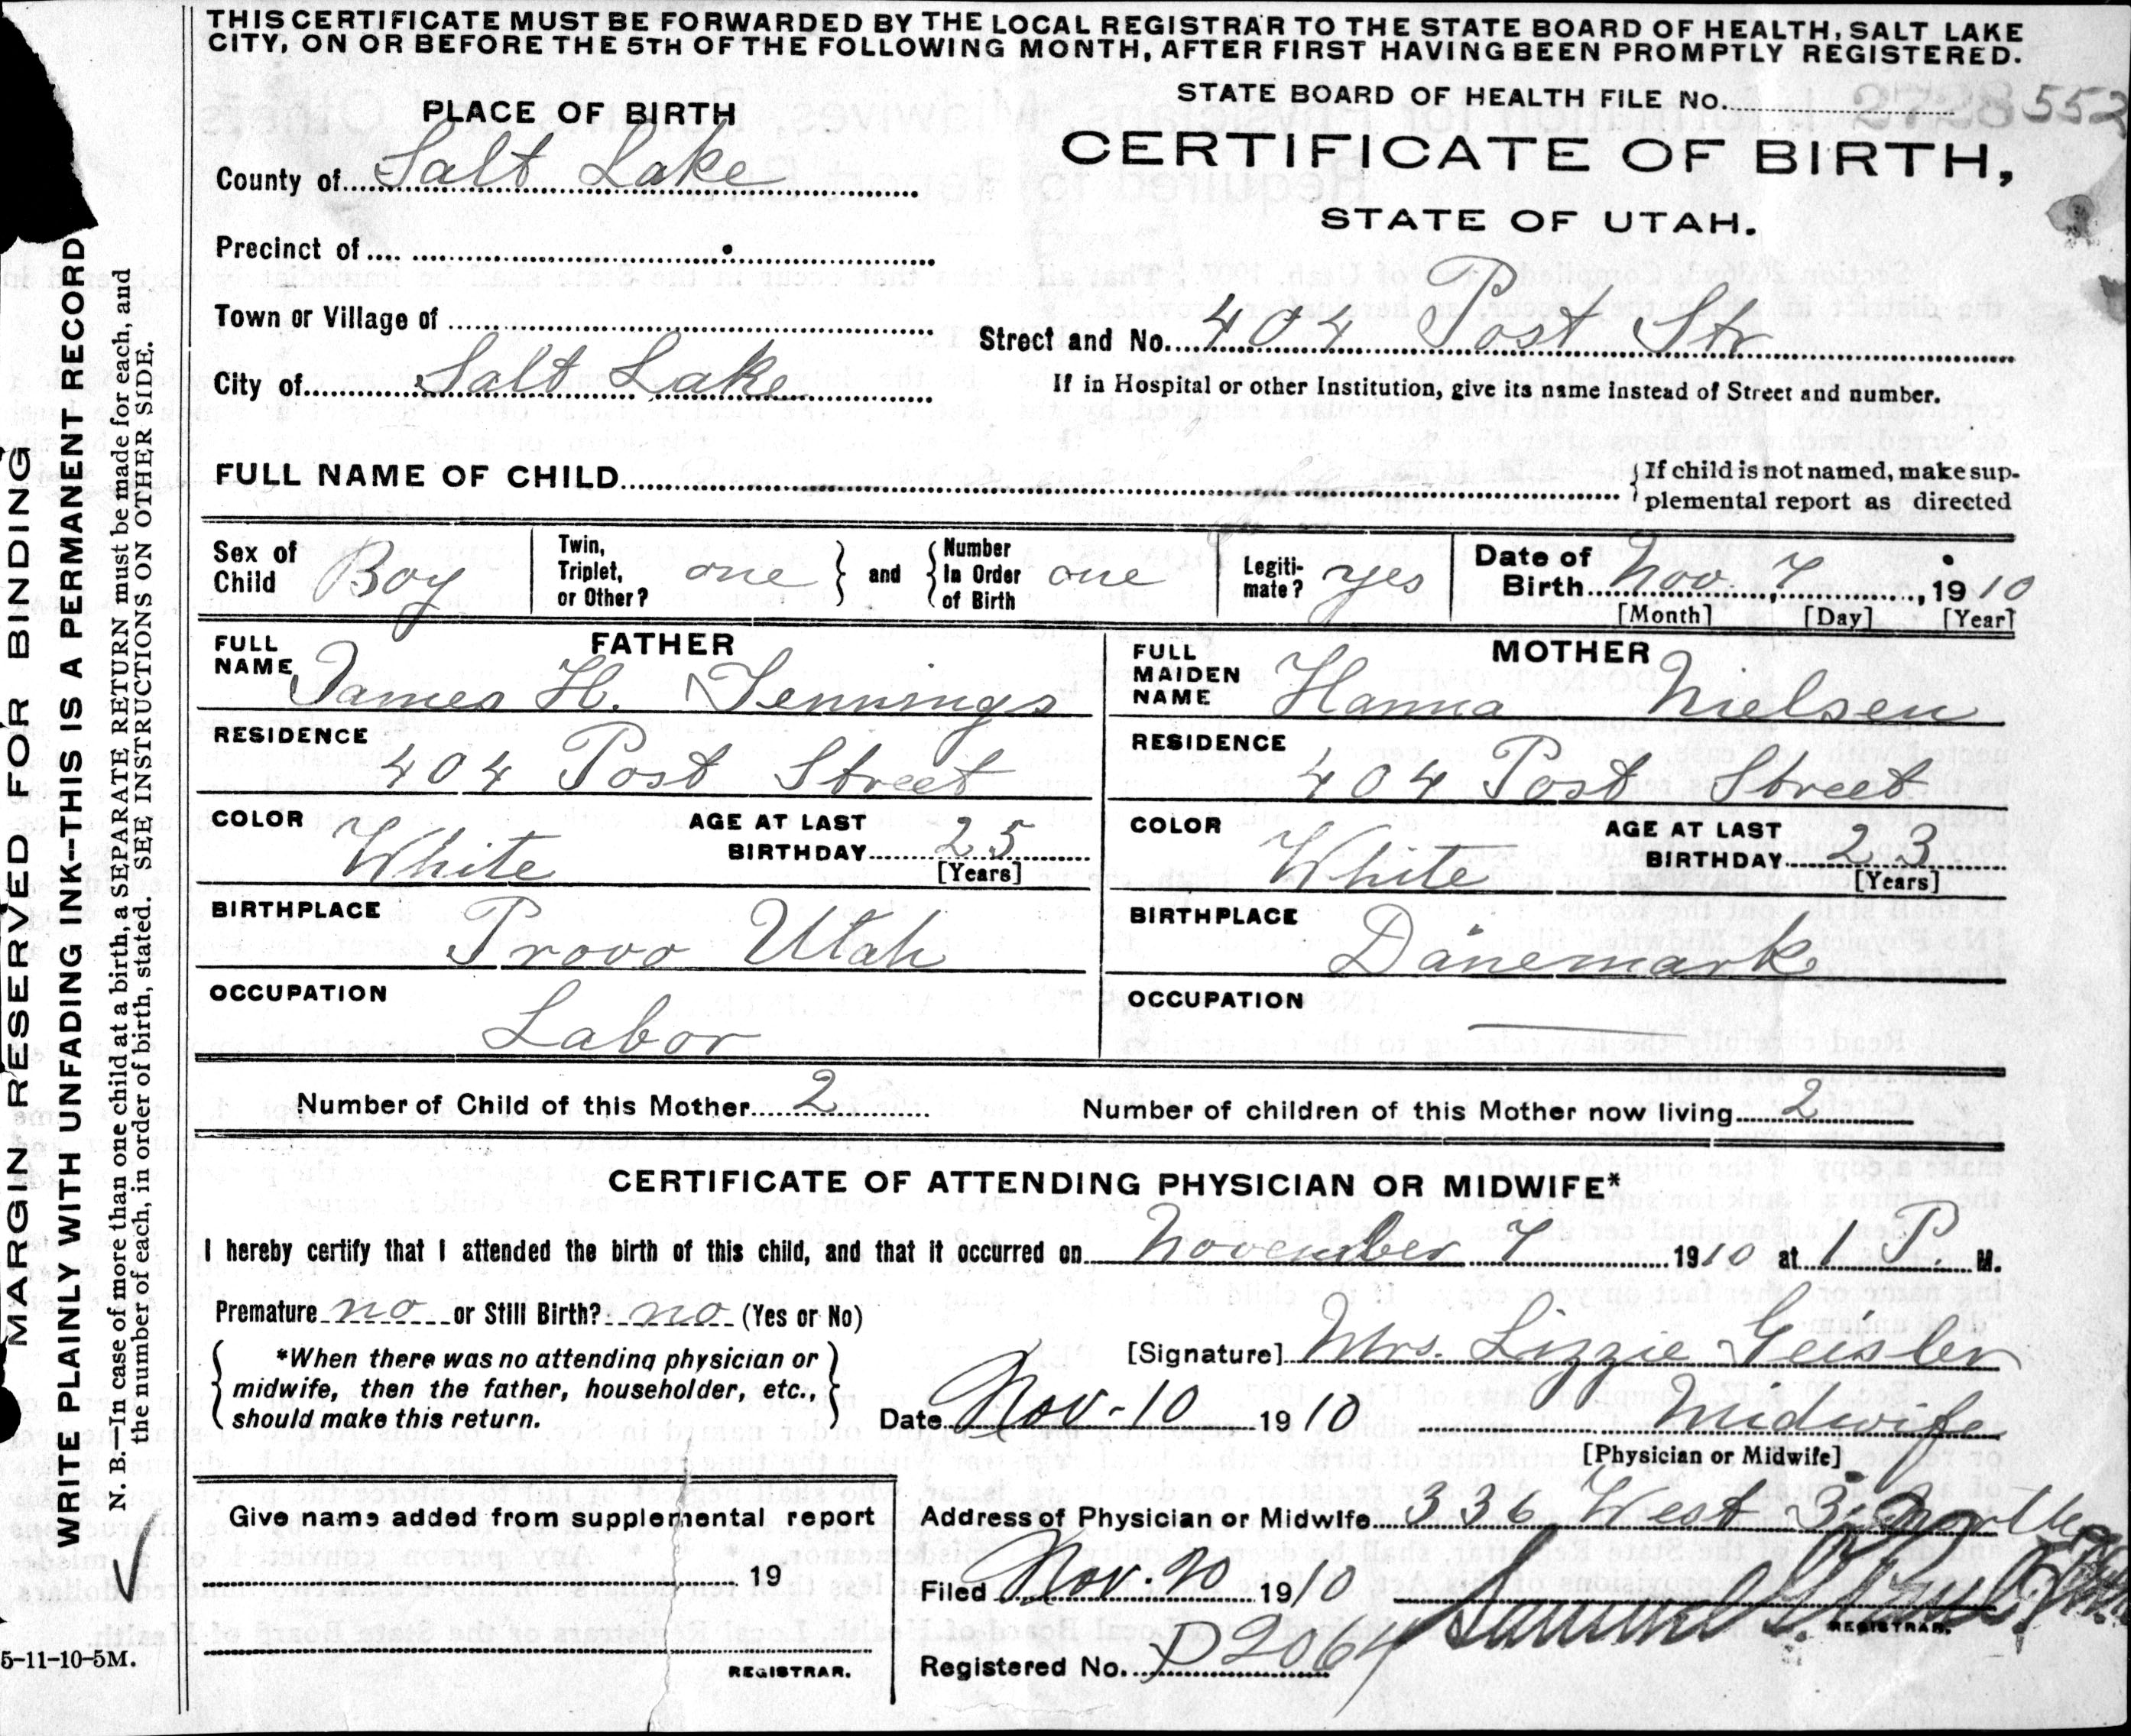 THIS CERTIFICATE MUST BE FORWARDED BY THE LOCAL REGISTRAR TO THE STATE BOARD OF HEALTH, SALT LAKE
CITY, ON OR BEFORE THE 5TH OF THE FOLLOWING MONTH, AFTER FIRST HAVING BEEN PROMPTLY REGISTERED.
STATE BOARD OF HEALTH FILE No. 2728 552
PLACE OF BIRTH
CERTIFICATE OF BIRTH,
STATE OF UTAH.
County of Salt Lake
Precinct of
Town or Village of
Street and No. 404 Post Str
City of Salt Lake
If in Hospital or other Institution, give its name instead of Street and number.
FULL NAME OF CHILD
If child is not named, make sup-
plemental report as directed
Sex of Child Boy
Twin, Triplet, or Other? one and Number In Order of Birth one
Legiti-mate? yes
Date of Birth Nov. 7, 1910
[Month] [Day] [Year]
FATHER
FULL NAME James H. Jennings
RESIDENCE 404 Post Street
COLOR White AGE AT LAST BIRTHDAY 25
[Years]
BIRTHPLACE Provo Utah
OCCUPATION Labor
MOTHER
FULL MAIDEN NAME Hanna Nielsen
RESIDENCE 404 Post Street
COLOR White AGE AT LAST BIRTHDAY 23
[Years]
BIRTHPLACE Danemark
OCCUPATION —
Number of Child of this Mother 2 Number of children of this Mother now living 2
CERTIFICATE OF ATTENDING PHYSICIAN OR MIDWIFE*
I hereby certify that I attended the birth of this child, and that it occurred on November 7 1910 at 1 P. M.
Premature no or Still Birth? no (Yes or No)
*When there was no attending physician or
midwife, then the father, householder, etc.,
should make this return.
[Signature] Mrs. Lizzie Geisler
Date Nov-10 1910 Midwife
[Physician or Midwife]
Give name added from supplemental report
19
REGISTRAR.
Address of Physician or Midwife 336 West 3 North
Filed Nov. 20 1910 Samuel G.
REGISTRAR.
Registered No. P2064
MARGIN RESERVED FOR BINDING
WRITE PLAINLY WITH UNFADING INK—THIS IS A PERMANENT RECORD
N. B.—In case of more than one child at a birth, a SEPARATE RETURN must be made for each, and
the number of each, in order of birth, stated. SEE INSTRUCTIONS ON OTHER SIDE.
5-11-10-5M.